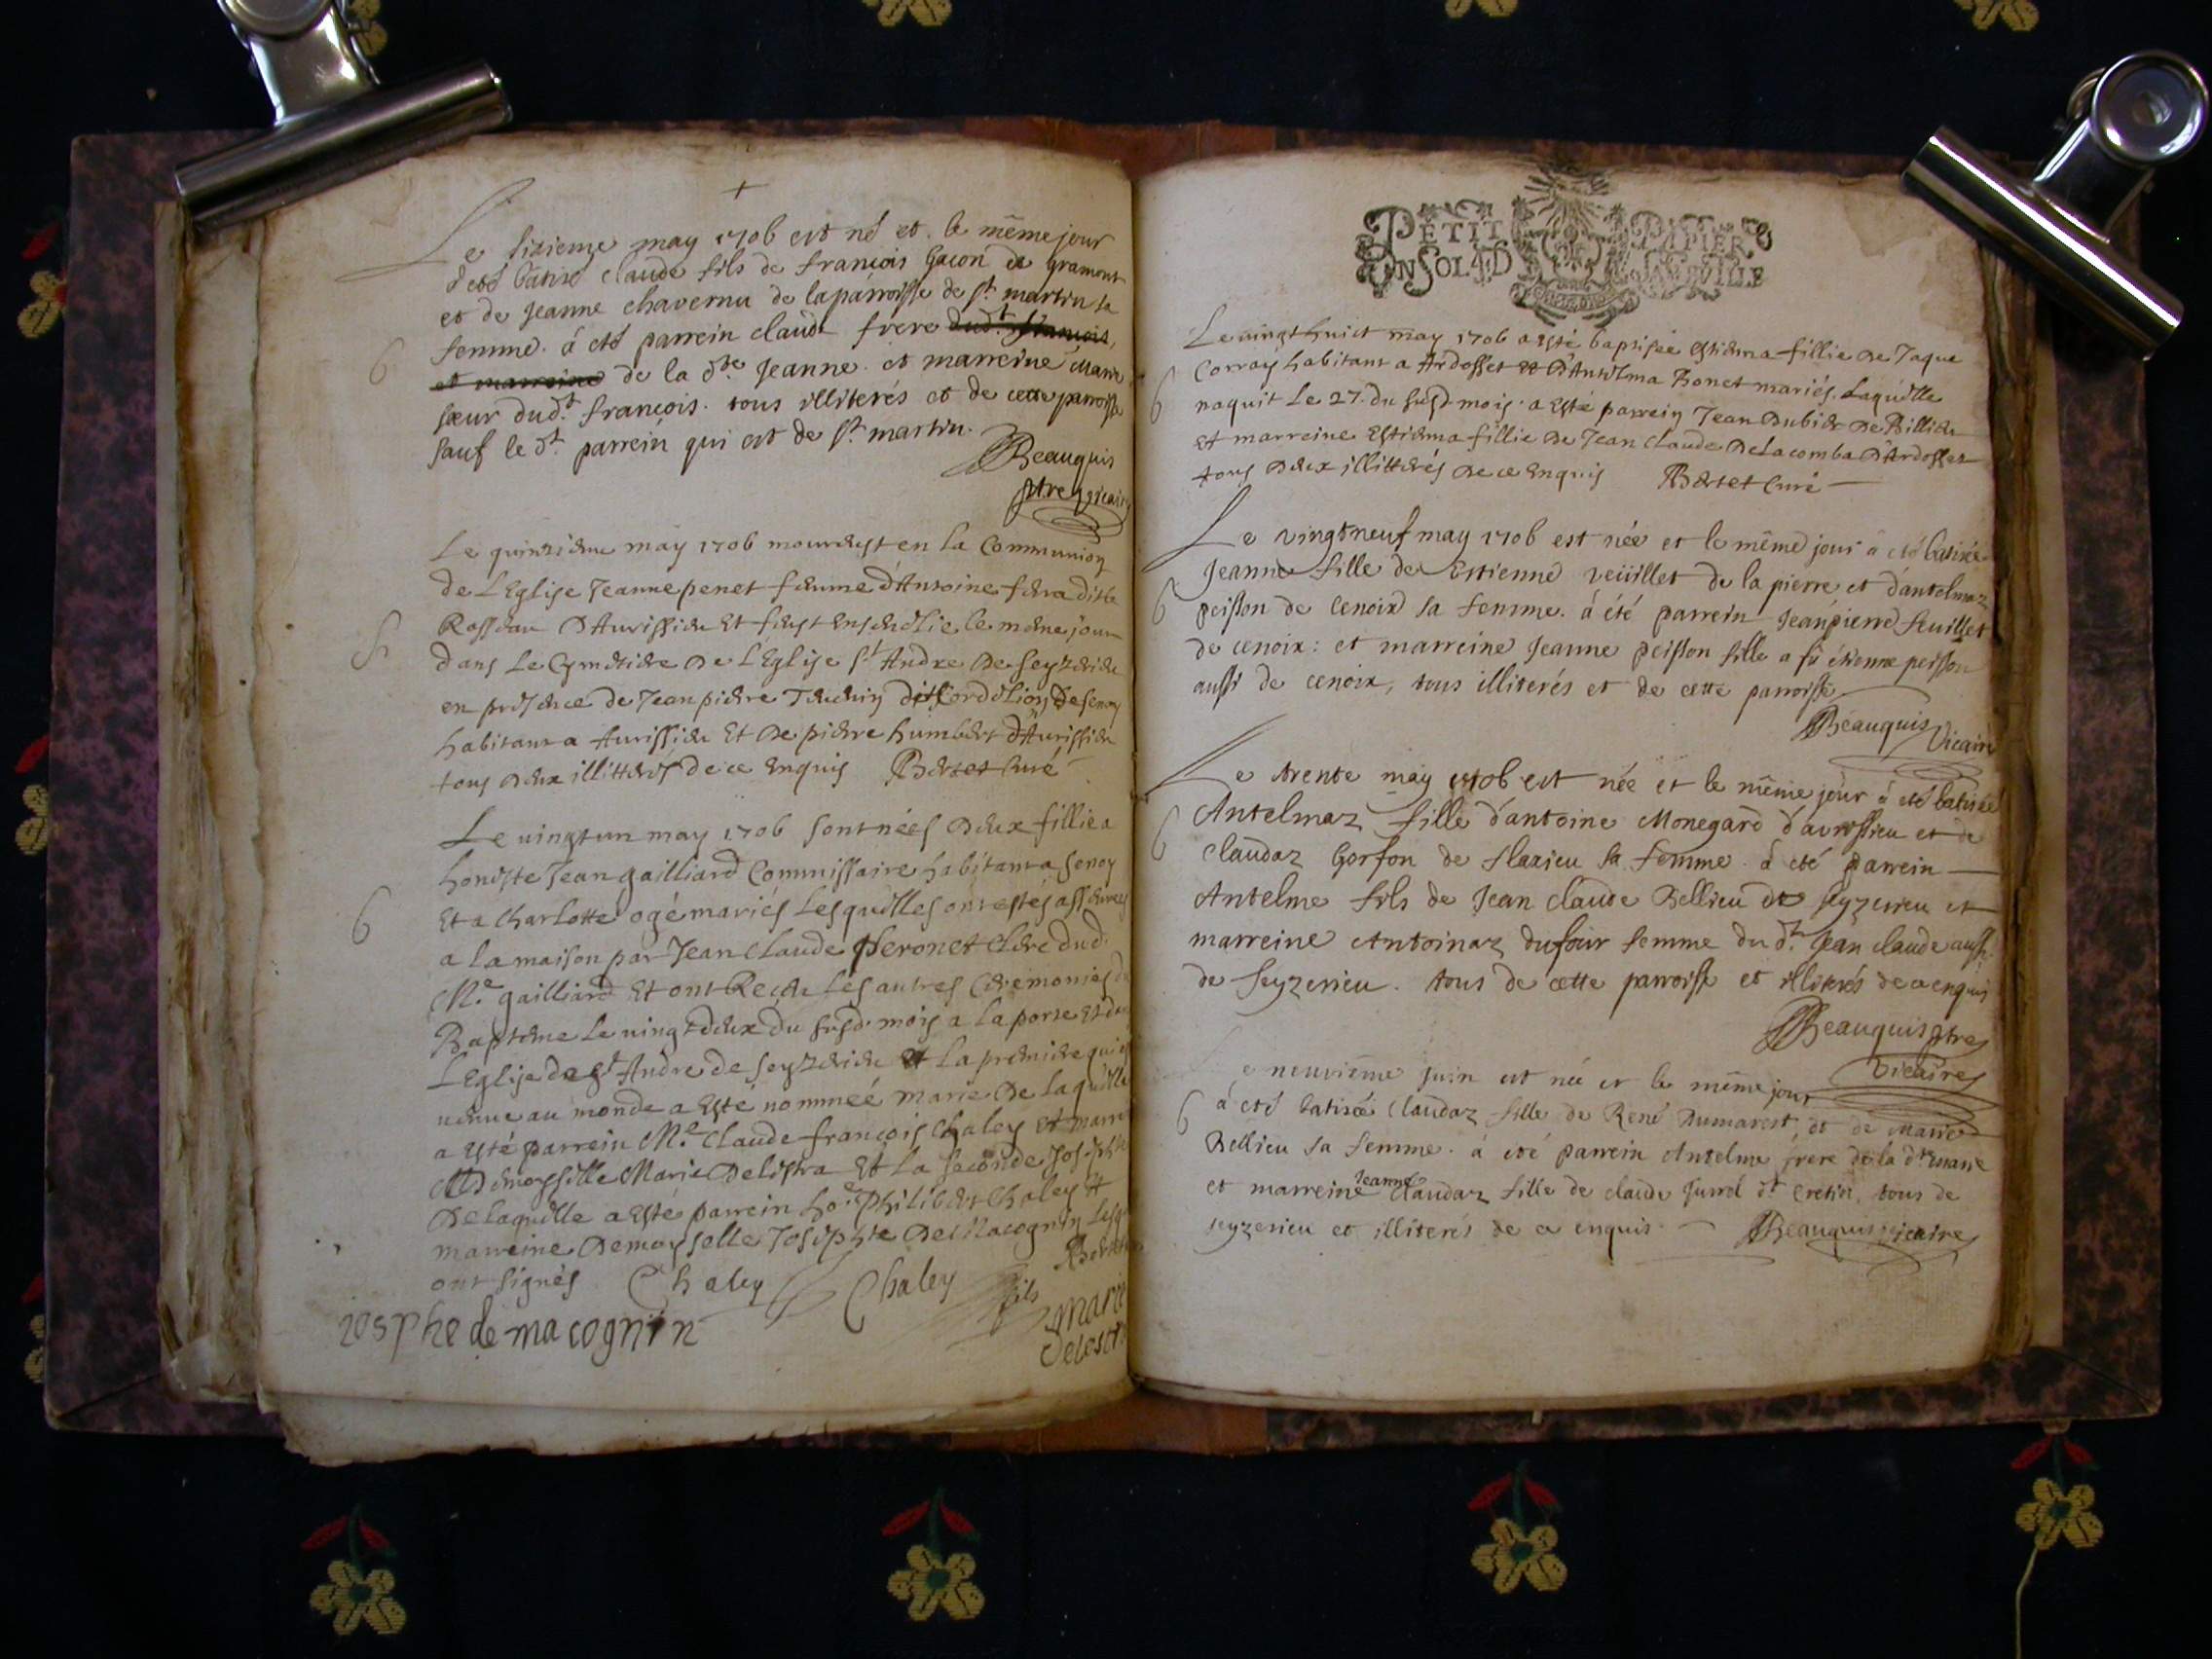 Le sixieme may 1706 est né et le mēme jour
á eté batisé claude fils de francois Gacon de gramont
et de Jeanne chavernu de la parroisse de st martin sa
femme. á eté parrein claude frere dudt francois,
et marreine de la dte Jeanne. et marreine Marie
sœur dudt francois. tous illiterés et de cette parroisse
sauf le dt parrein qui est de st martin.
Beauquis
ptre vicaire
6
Le quinzieme may 1706 mourust en la Communion
de LEglise Jeanne penet femme d'Antoine fera dit le
Rosseau D'Aurissieu Et fust ensevelie le mesme jour
S
dans Le Cymetiere De LEglise st Andre De seyzerieu
en presence de Jean pierre Teuvin dit Cordelion De senoy
habitant a Aurissieu Et De pierre humbert d'Aurissieu
tous deux illitterés de ce Enquis Bertet Curé
Le vingt un may 1706 sont nées deux fillie a
honeste Jean gailliard Commissaire habitant a Senoy
6
Et a Charlotte ogé mariés Lesquelles ont estés assurees
a la maison par Jean Claude peronet Clerc dud.
Me gailliard Et ont Receu Les autres Ceremonies du
Bapteme Le vingt deux du susd. mois a la porte Et de
LEglise de st Andre de seyzerieu Et La premiere qui est
venue au monde a Esté nommeé marie De laquelle
a Esté parrein Me Claude francois Chaley Et marreine
Demoysille Marie Delestra Et La Seconde Josephte
De laquelle a Esté parrein ho. philibert Chaley Et
marreine Demoyselle Josephte De Macognin Lesq
ont signés Chaley Chaley fils
iosphe de macognin marie
delestra
PETIT PAPIER
UN SOL 4 D LA FEUILLE
Le vingt huict may 1706 a esté baptisée Estiema fillie de Jaque
Corray habitant a Ardosset Et D'Antelma Bonet mariés. Laquelle
6
naquit Le 27. du susd. mois. a Esté parrein Jean Dubier De Billieu
Et marreine Estiema fillie De Jean Claude De lacomba D'Ardosset
tous deux illitterés de ce Enquis Bertet Curé
Le vingt neuf may 1706 est née et le même jour á eté batisée
Jeanne fille de Estienne veüillet de la pierre et d'antelmaz
6
peisson de cenoix sa femme. á été parrein Jean pierre feuillet
de cenoix: et marreine Jeanne peisson fille a fû étienne peisson
aussi de cenoix, tous illiterés et de cette parroisse
Beauquis Vicaire
Le trente may 1706 est née et le même jour á eté batisée
Antelmaz fille d'antoine Monegard d'avrissieu et de
6
Claudaz Gorson de flaxieu sa femme. á eté parrein
Antelme fils de Jean claude Bellieu de seyzerieu et
marreine Antoinaz dufour femme du dt Jean claude aussi
de seyzerieu. tous de cette parroisse et illiterés de ce enquis
Beauquis ptre
Vicaire
e neuvième Juin est née et le même jour
6
á eté batisée Claudaz fille de René Dumarest, et de Marie
Bellieu sa femme. á été parrein Antelme frere de la dte marie
Jeanne
et marreine Claudaz fille de claude Juvrel dt Cretin, tous de
seyzerieu et illiterés de ce enquis. Beauquis vicaire